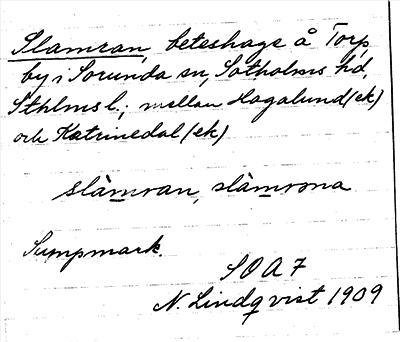 Slamran, beteshage å Torp,
by i Sorunda sn, Sotholms hd,
Sthlms l.; mellan Hagalund (ek)
och Katrinedal (ek)
slàmran, slàmrona
Sumpmark.
SOA 7
N. Lindqvist 1909